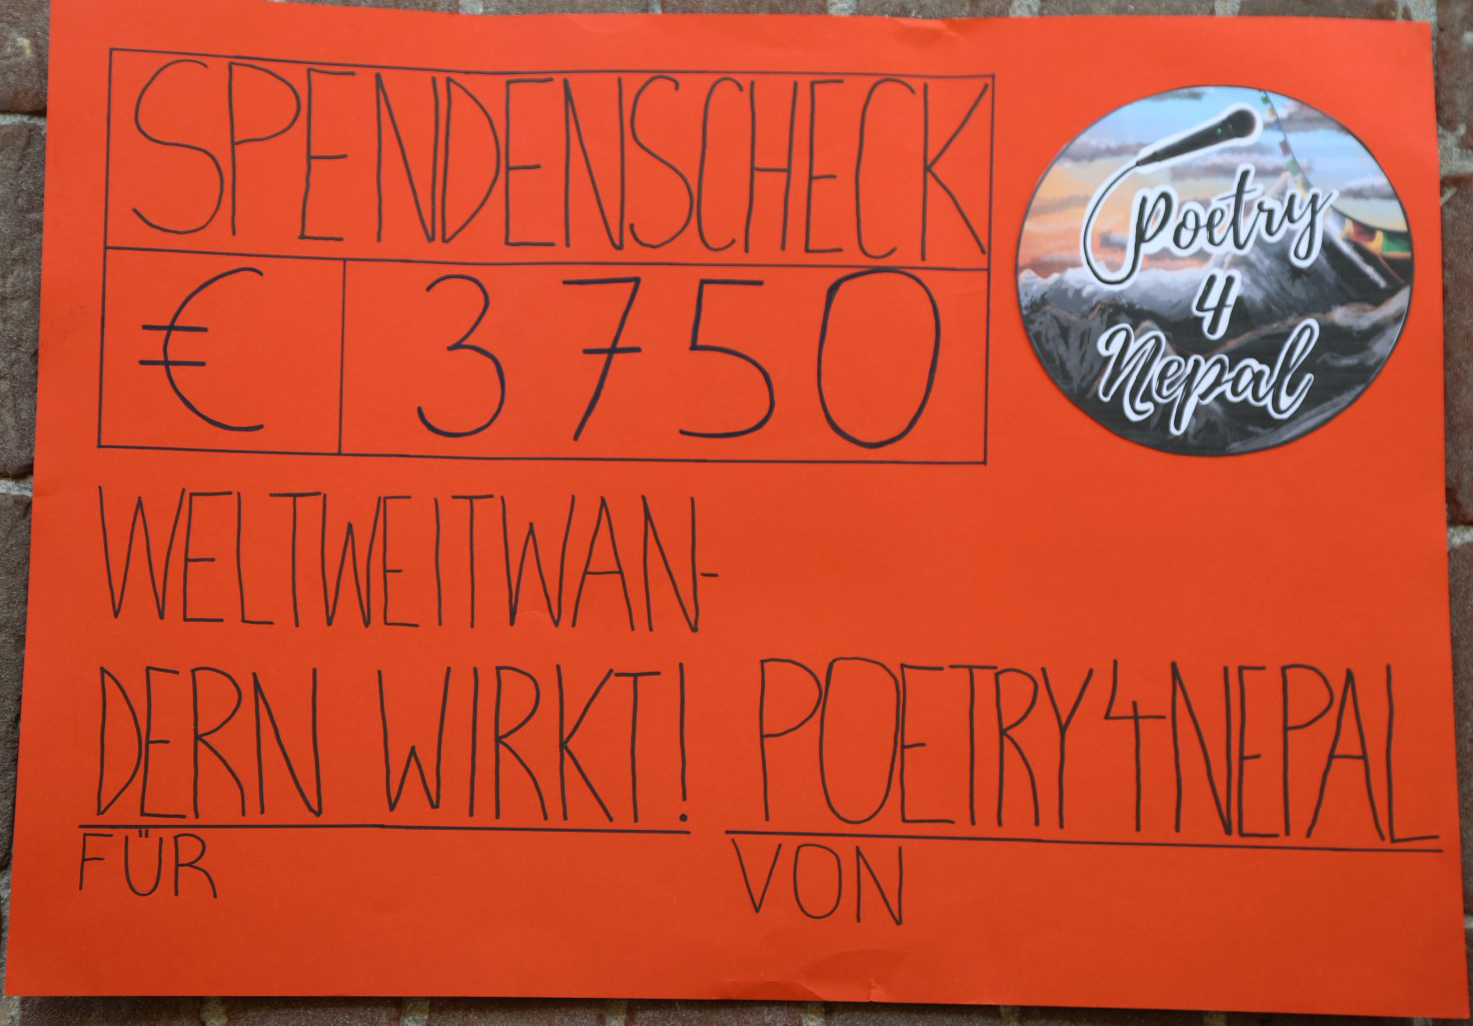 SPENDENSCHECK
€ 3750
Poetry
4
Nepal
WELTWEITWAN-
DERN WIRKT!
FÜR
POETRY4NEPAL
VON